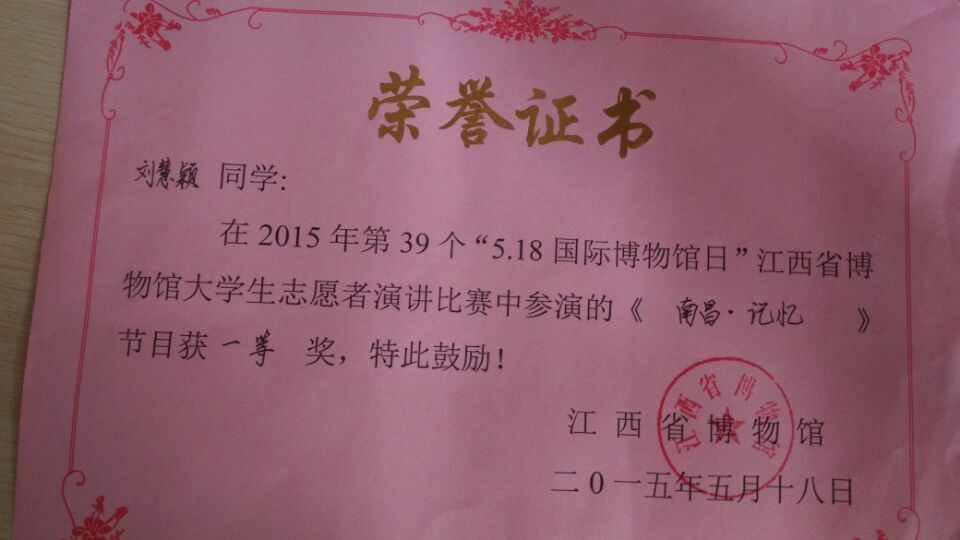 荣誉证书
刘慧颖 同学:
在 2015 年第 39 个“5.18 国际博物馆日”江西省博
物馆大学生志愿者演讲比赛中参演的《 南昌·记忆 》
节目获 一等 奖，特此鼓励！
江西省博物馆
江西省博物馆
二0一五年五月十八日